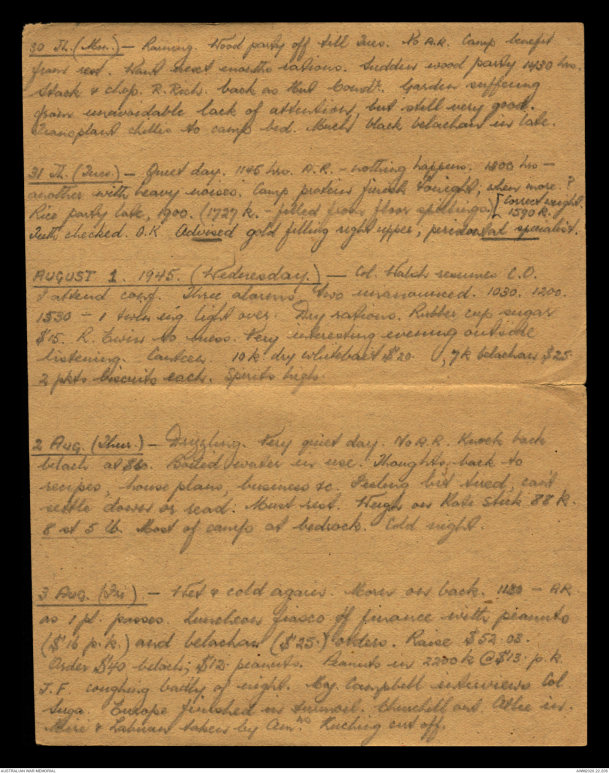 30 Th. (Mon.) — Raining. Wood party off till Tues. No A.R. Camp benefit
from rest. Want next months rations. Sudden wood party 1430 hrs.
Stack & chop. R. Rich. back as Hut Comdt. Garden suffering
from unavoidable lack of attention, but still very good.
Transplant chillis to camp bed. Much black belachan in late.
31 Th. (Tues) — Quiet day. 1145 hrs. A.R. – nothing happens. 1300 hrs —
another with heavy noises. Camp proteins finish tonight, when more?
Rice party late, 1900. (1727 k. – filled from floor spillings.) [Correct weight.
1590 k.
Teeth checked. O.K Advised gold filling right upper, periodontal specialist.
AUGUST 1. 1945. (Wednesday.) — Col. Walsh resumes C.O.
I attend conf. Three alarms, two unannounced. 1030. 1200.
1530 – 1 twin eng. light over. Dry rations. Rubber cup sugar
$15. R. Ewin to mess. Very interesting evening outside
listening. Canteen. 10 k. dry whitebait $20. 7k belachan $25
2 pkts biscuits each. Spirits high.
2 Aug. (Thur.) — Drizzling. Very quiet day. No A.R. Knock back
belach at $60. Boiled water in use. Thoughts back to
recipes, house plans, business &c. Feeling bit tired, can't
settle down or read. Must rest. Weigh on Kati stick 88 k.
8 st 5 lb. Most of camp at bedrock. Cold night.
3 Aug. (Fri) — Wet & cold again. Move on back. 1130 – AR
as 1 pl. passes. Luncheon fiasco of finance with peanuts
($16 p.k.) and belachan ($25.) orders. Raise $52.03.
Order $40 belach; $12. peanuts. Peanuts in 2200 k @ $13. p.k.
J.F. coughing badly of night. Maj. Campbell interviews Col.
Suga. Europe finished in turmoil. Churchill out, Atlee in.
Miri & Labuan taken by Am.ns Kuching cut off.